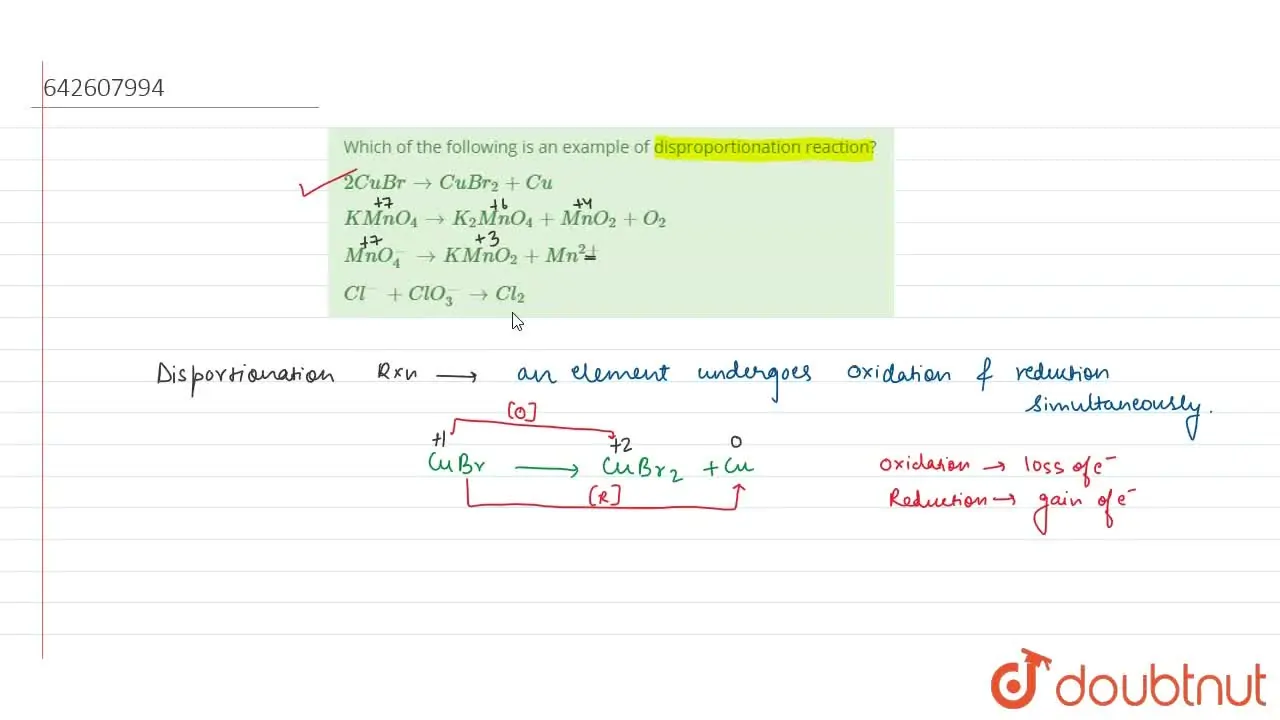 642607994
Which of the following is an example of disproportionation reaction?
2CuBr → CuBr₂ + Cu
+7 +6 +4
KMnO₄ → K₂MnO₄ + MnO₂ + O₂
+7 +3
MnO₄⁻ → KMnO₂ + Mn²⁺
Cl⁻ + ClO₃⁻ → Cl₂
Disportionation Rxn → an element undergoes oxidation & reduction
simultaneously.
[O]
+1 +2 0
CuBr → CuBr₂ + Cu
[R]
Oxidation → loss of e⁻
Reduction → gain of e⁻
doubtnut